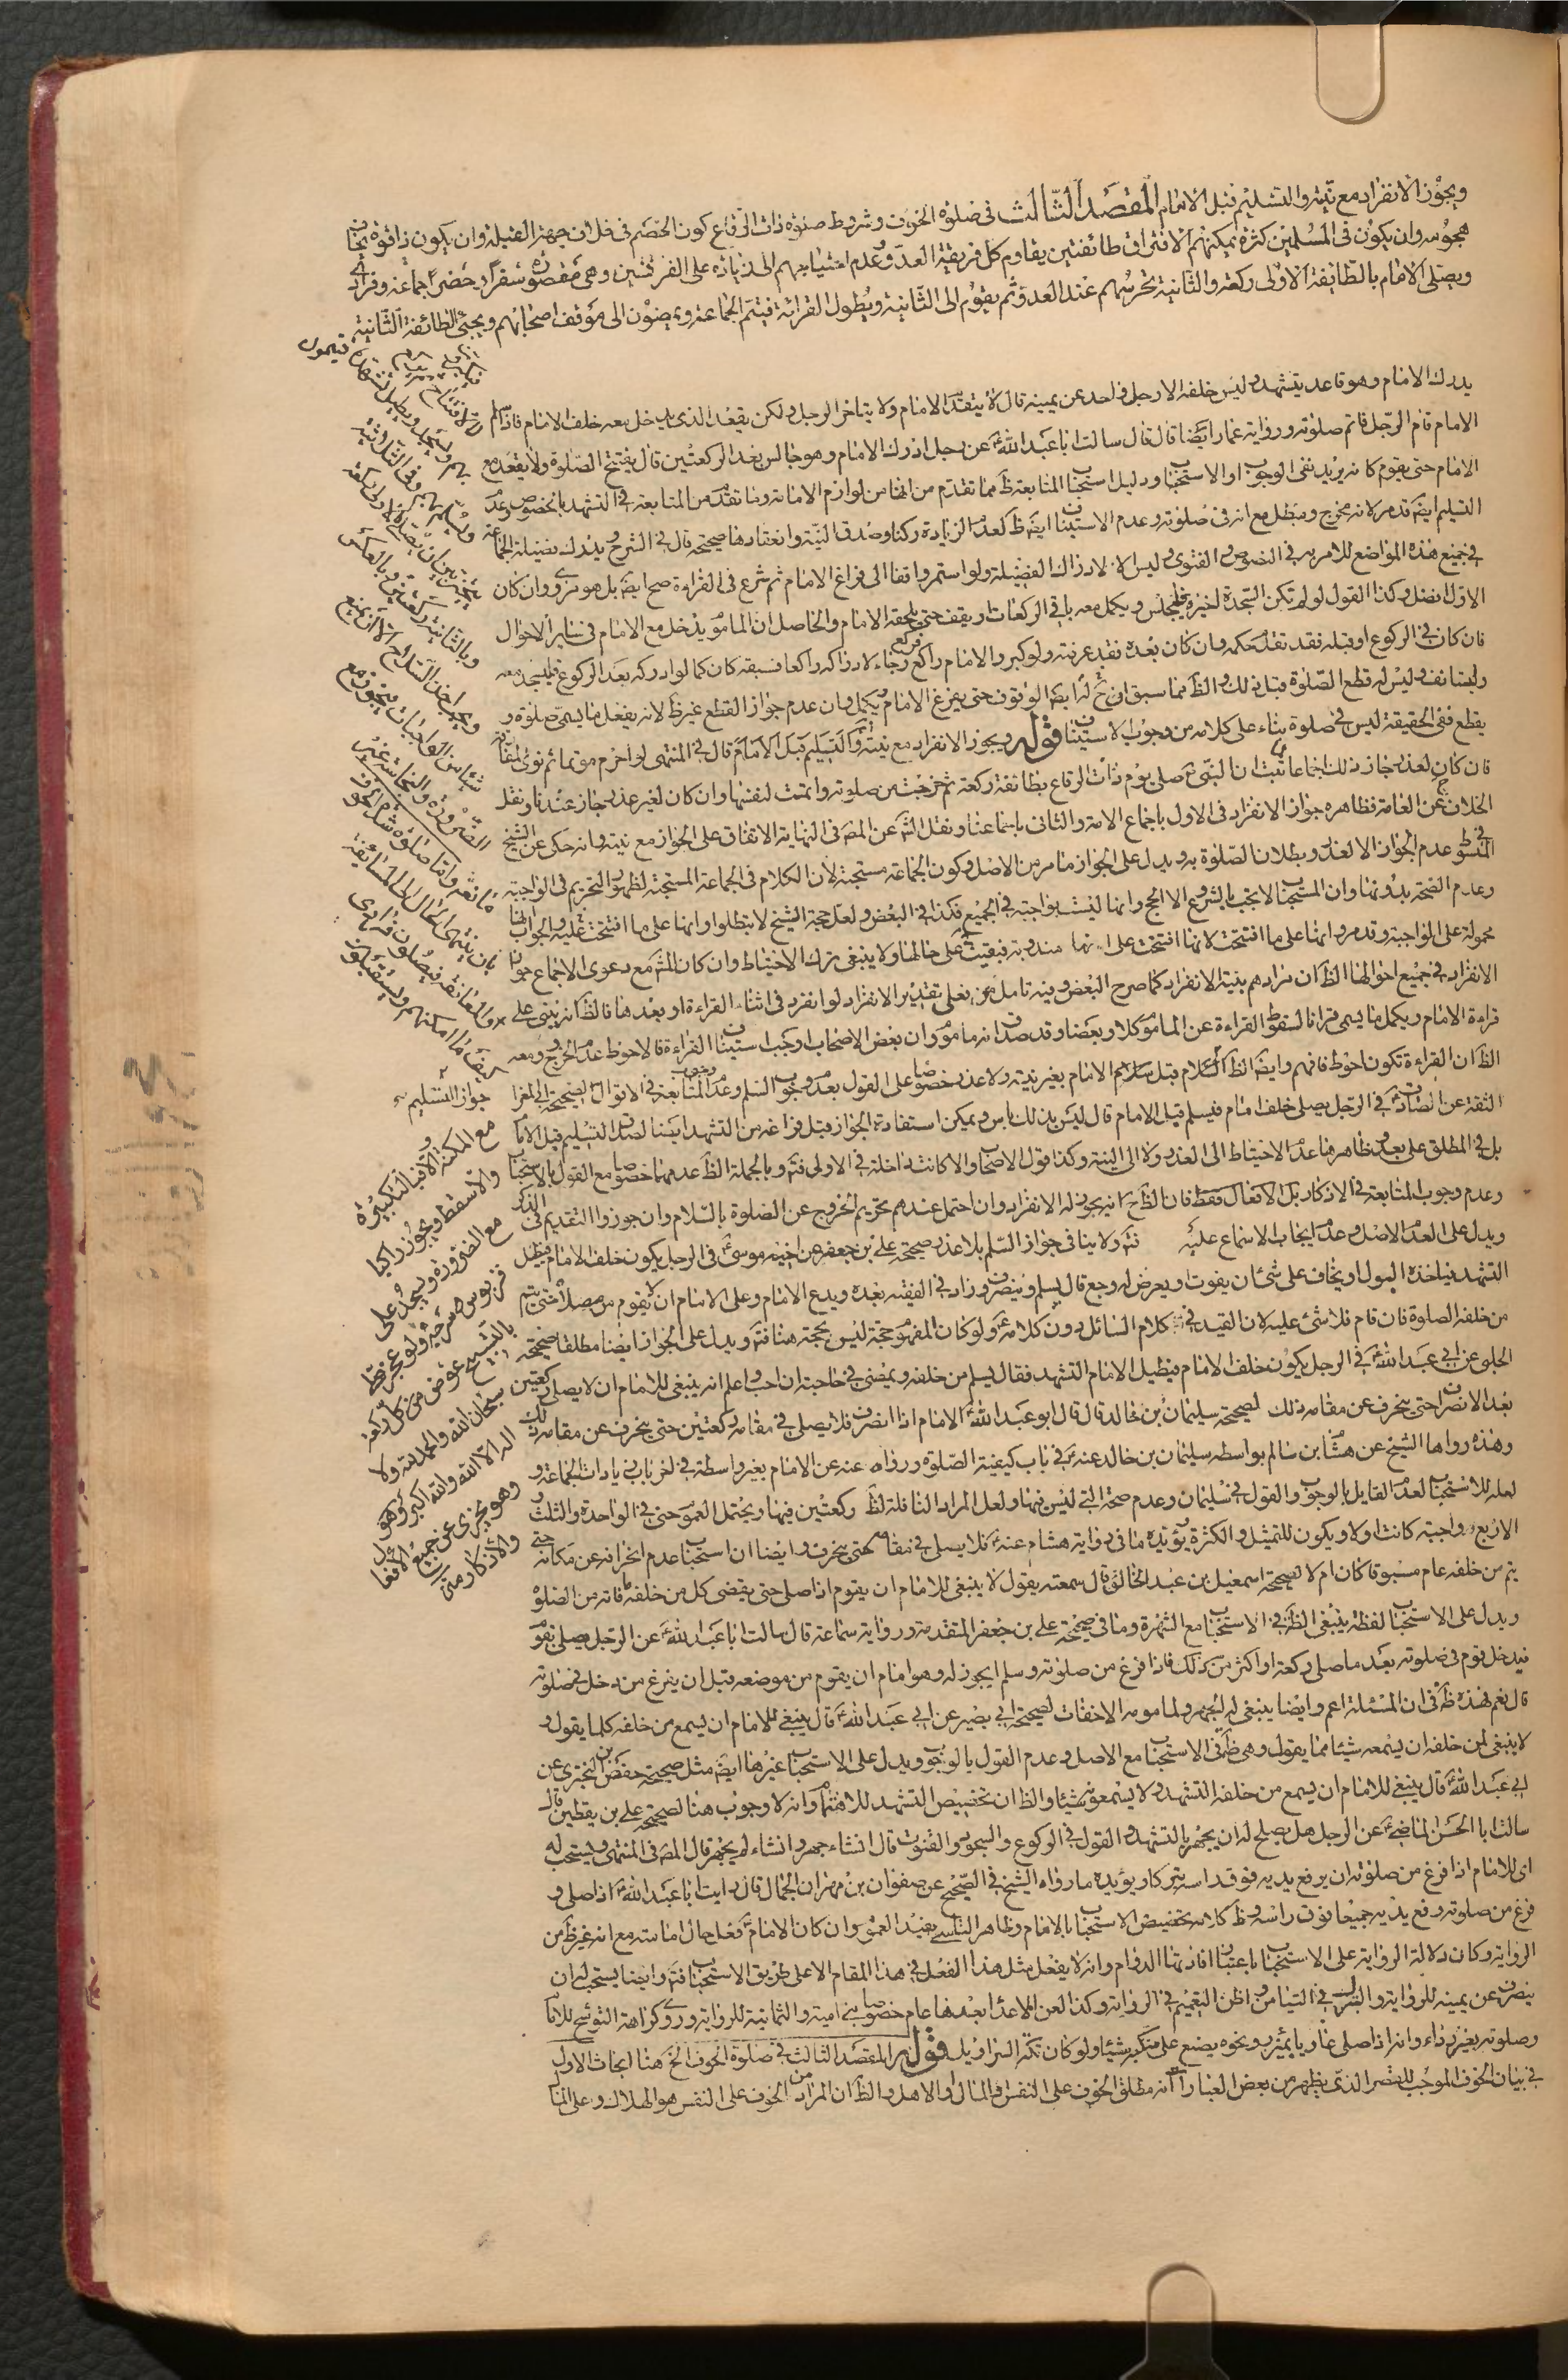 ويجوز الانفراد مع نيته والتسليم قبل الامام المقصد الثالث في صلوة الخوف وشروط صلوة ذات الرقاع كون الخصم في خلاف جهة القبلة وان يكون ذا قوة يخاف
هجومه وان يكون في المسلمين كثرة يمكنهم الافتراق طائفتين يقاوم كل فريق العدو وعدم احتياجهم الى زيادة على الفرقتين وهي مقصورة سفرا وحضرا جماعة وفرادى
ويصلي الامام بالطائفة الاولى ركعة والثانية تحرسهم عند العدو ثم يقوم الى الثانية ويطول القرائة فيتم الجماعة ويمضون الى موقف اصحابهم ويجئ الطائفة الثانية
يدرك الامام وهو قاعد يتشهد وليس خلفه الا رجل واحد عن يمينه قال لا يتقدم الامام ولا يتاخر الرجل ولكن يقعد الذي يدخل معه خلف الامام فاذا سلم
الامام قام الرجل فاتم صلوته ورواية عمار ايضا قال قال سالت ابا عبد الله ع عن رجل ادرك الامام وهو جالس بعد الركعتين قال يفتتح الصلوة ولا يقعد مع
الامام حتى يقوم كانه يريد نفي الوجوب او الاستحباب ودليل استحباب المتابعة ظ مما تقدم من انها من لوازم الامامة وما تقدم من المتابعة في التشهد بالخصوص وعدم
التسليم ايضا قد مر لانه مخرج ومبطل مع انه في صلوته وعدم الاستيناف ايضا ظ لعدم الزيادة ركنا وصدق النية وانعقادها صحيحة قال في الشرح ويدرك فضيلة الجماعة
في جميع هذه المواضع للامر به في النصوص والفتوى وليس الا لادراك الفضيلة ولو استمر واقفا الى فراغ الامام ثم شرع في القراءة صح ايضا بل هو مروي وان كان
الاول افضل وكذا القول لو لم تكن السجدة اخيرة فليجلس ويكمل معه باقي الركعات او يقف حتى يلحقه الامام والحاصل ان الماموم يدخل مع الامام في ساير الاحوال
فان كان في الركوع او قبله فقد تقدم حكمه وان كان بعده فقد عرفته ولو كبر والامام راكع فركع رجاء لادراكه راكعا فسبقه كان كما لو ادركه بعد الركوع فليسجد معه
وليستانف وليس له قطع الصلوة قبل ذلك والظ مما سبق ان ح له ايضا الوقوف حتى يفرغ الامام ويكمل وان عدم جواز القطع غير ظ لانه يفعل ما يسمى صلوة و
يقطع ففي الحقيقة ليس في صلوة بناء على كلامه من وجوب الاستيناف قوله ويجوز الانفراد مع نيته والتسليم قبل الامام قال في المنتهى لو احرم موتما ثم نوى المفارقة
فان كان لعذر جاز ذلك اجماعا ثبت ان النبي ص صلى يوم ذات الرقاع بطائفة ركعة ثم خرجت من صلوته واتمت لنفسها وان كان لغير عذر جاز عندنا ونقل
الخلاف عن العامة فظاهره جواز الانفراد في الاول باجماع الامة والثاني باجماعنا ونقل الش عن المص في النهاية الاتفاق على الجواز مع نيته وانه حكى عن الشيخ
في المبسوط عدم الجواز الا لعذر وبطلان الصلوة به ويدل على الجواز ما مر من الاصل وكون الجماعة مستحبة لان الكلام في الجماعة المستحبة لظهور التحريم في الواجبة
وعدم الصحة بدونها وان المستحب لا يجب بالشروع الا الحج وانها ليست بواجبة في الجميع فكذا في البعض ولعل حجة الشيخ لا تبطلوا وانها على ما افتتحت عليه والجواب انها
محمولة على الواجبة وقد مر وانها على ما افتتحت لانها افتتحت على انها مندوبة فبقيت على حالها ولا ينبغي ترك الاحتياط وان كان المش مع دعوى الاجماع جواز
الانفراد في جميع احوالها الظ ان مرادهم بنية الانفراد كما صرح البعض وفيه تامل فعلى تقدير الانفراد لو انفرد في اثناء القراءة او بعدها فالظ انه يبنى على
قراءة الامام ويكمل ما يسمى قرانا لسقوط القراءة عن الماموم كلا وبعضا وقد صدق انه ماموم وان بعض الاصحاب اوجب استيناف القراءة فالاحوط عدم الخروج ومعه
الظ ان القراءة تكون احوط فافهم وايضا الظ السلام قبل سلام الامام بغير نيته ولا عذر خصوصا على القول بعدم وجوب السلم وعدم وجوب المتابعة في الاقوال لصحيحة ابي المغرا
الثقة عن الصادق ع في الرجل يصلي خلف امام فيسلم قبل الامام قال ليس بذلك باس ويمكن استفادة الجواز قبل فراغه من التشهد ايضا لصدق التسليم قبل الامام
بل في المطلق على بعد وظاهر ما عدم الاحتياط الى العذر ولا الى النية وكذا قول الاصحاب والا كانت داخلة في الاولى فتم وبالجملة الظ عدمهما خصوصا مع القول بالاستحباب
وعدم وجوب المتابعة في الاذكار بل الافعال فقط فان الظ ح انه يجوز له الانفراد وان احتمل عندهم تحريم الخروج عن الصلوة بالسلام وان جوزوا التقديم في الذكر
ويدل على العدم الاصل وعدم ايجاب الاستماع عليه فتم ولا ينافي جواز السلم بلا عذر صحيحة علي بن جعفر عن اخيه موسى ع في الرجل يكون خلف الامام فيطيل
التشهد فياخذه البول او يخاف على شئ ان يفوت او يعرض له وجع قال يسلم وينصرف وزاد في الفقيه بعده ويدع الامام وعلى الامام ان لا يقوم من مصلاه حتى يتم
من خلفه الصلوة فان قام فلا شئ عليه لان القيد في كلام السائل دون كلامه ع ولو كان المفهوم حجة ليس بحجة هنا فتم ويدل على الجواز ايضا مطلقا صحيحة
الحلبي عن ابي عبد الله ع في الرجل يكون خلف الامام فيطيل الامام التشهد فقال يسلم من خلفه ويمضي في حاجته ان احب واعلم انه ينبغي للامام ان لا يصلي ركعتين
بعد الانصراف حتى ينحرف عن مقامه ذلك لصحيحة سليمان بن خالد قال قال ابو عبد الله ع الامام اذا انصرف فلا يصلي في مقامه ركعتين حتى ينحرف عن مقامه ذلك
وهذه رواها الشيخ عن هشام بن سالم بواسطه سليمان بن خالد عنه ع في باب كيفية الصلوة ورواه عنه عن الامام بغير واسطة في اخر باب زيادات الجماعة و
لعله للاستحباب لعدم القايل بالوجوب والقول في سليمان وعدم صحة التي ليس فيها ولعل المراد النافلة لظ ركعتين فيها ويحتمل العموم حتى في الواحدة والثلث و
الاربع واجبة كانت اولا ويكون للتمثيل والكثرة يؤيده ما في رواية هشام عنه ع فلا يصلي في مقامه حتى ينحرف وايضا ان استحباب عدم انحرافه عن مكانه حتى
يتم من خلفه عام مسبوقا كان ام لا لصحيحة اسمعيل بن عبد الخالق قال سمعته يقول لا ينبغي للامام ان يقوم اذا صلى حتى يقضي كل من خلفه ما فاته من الصلوة
ويدل على الاستحباب لفظة ينبغي الظ في الاستحباب مع الشهرة وما في صحيحة علي بن جعفر المتقدمة ورواية سماعة قال سالت ابا عبد الله ع عن الرجل يصلي بقوم
فيدخل قوم في صلوته بعد ما صلى ركعة او اكثر من ذلك فاذا فرغ من صلوته وسلم ايجوز له وهو امام ان يقوم من موضعه قبل ان يفرغ من دخل في صلوته
قال نعم فهذه ظ في ان المسئلة اعم وايضا ينبغي له الجهر ولمامومه الاخفات لصحيحة ابي بصير عن ابي عبد الله ع قال ينبغي للامام ان يسمع من خلفه كلما يقول و
لا ينبغي لمن خلفه ان يسمعه شيئا مما يقول وهي ظ في الاستحباب مع الاصل وعدم القول بالوجوب ويدل على الاستحباب غيرها ايضا مثل صحيحة حفص بن البختري عن
ابي عبد الله ع قال ينبغي للامام ان يسمع من خلفه التشهد ولا يسمعونه شيئا والظ ان تخصيص التشهد للاهتمام وانه لا وجوب هنا لصحيحة علي بن يقطين قال
سالت ابا الحسن الماضي ع عن الرجل هل يصلح له ان يجهر بالتشهد والقول في الركوع والسجود والقنوت قال ان شاء جهر وان شاء لم يجهر قال المص في المنتهى ويستحب له
اي للامام اذا فرغ من صلوته ان يرفع يديه فوق راسه تبركا ويؤيده ما رواه الشيخ في الصحيح عن صفوان بن مهران الجمال قال رايت ابا عبد الله ع اذا صلى و
فرغ من صلوته رفع يديه جميعا فوق راسه وظ كلامه تخصيص الاستحباب بالامام وظاهر التاسي يفيد العموم وان كان الامام ع فعل حال امامته مع انه غير ظ من
الرواية وكان دلالة الرواية على الاستحباب باعتبار افادتها الدوام وانه لا يفعل مثل هذا الفعل في هذا المقام الا على طريق الاستحباب فتم وايضا يستحب له ان
ينصرف عن يمينه للرواية والتيامن في الظ التعميم في الرواية وكذا لعن الاعداء بعدها عام خصوصا بني امية والثمانية للرواية وروي كراهة التوشح للامام
وصلوته بغير رداء وانه اذا صلى عاريا يمئزر ونحوه يضع على منكبه شيئا ولو كان تكة السراويل قوله المقصد الثالث في صلوة الخوف الخ هنا ابحاث الاول
في بيان الخوف الموجب للقصر الذي يظهر من بعض العبارات انه مطلق الخوف على النفس والمال والاهل والظ ان المراد من الخوف على النفس هو الهلاك وعلى المال
فيكبرون للافتتاح
بهم ويسجد ويطيل تشهده فيتمون
ويسلم بهم وفي الثلاثية
يتخير بين ان يصلي بالاولى ركعة
وبالثانية ركعتين وبالعكس
ويجب اخذ السلاح الا ان يمنع
شيئا من الواجبات فيجوز مع
الضرورة والنجاسة غير
مانعة واما صلوة شدة الخوف
بان ينتهي الحال الى المسائفة
والمعانقة فيصلون فرادى
كيف ما امكنهم ويستقبلون
مع المكنة والا فبالتكبيرة
والا سقط ويجوز راكبا
مع الضرورة ويسجد على
قربوس سرجه ولو عجز صلى
بالتسبيح عوض كل ركعة
سبحان الله والحمد لله ولا
اله الا الله والله اكبر وهو
وهو يجزي عن جميع الافعال
والاذكار
جواز التسليم